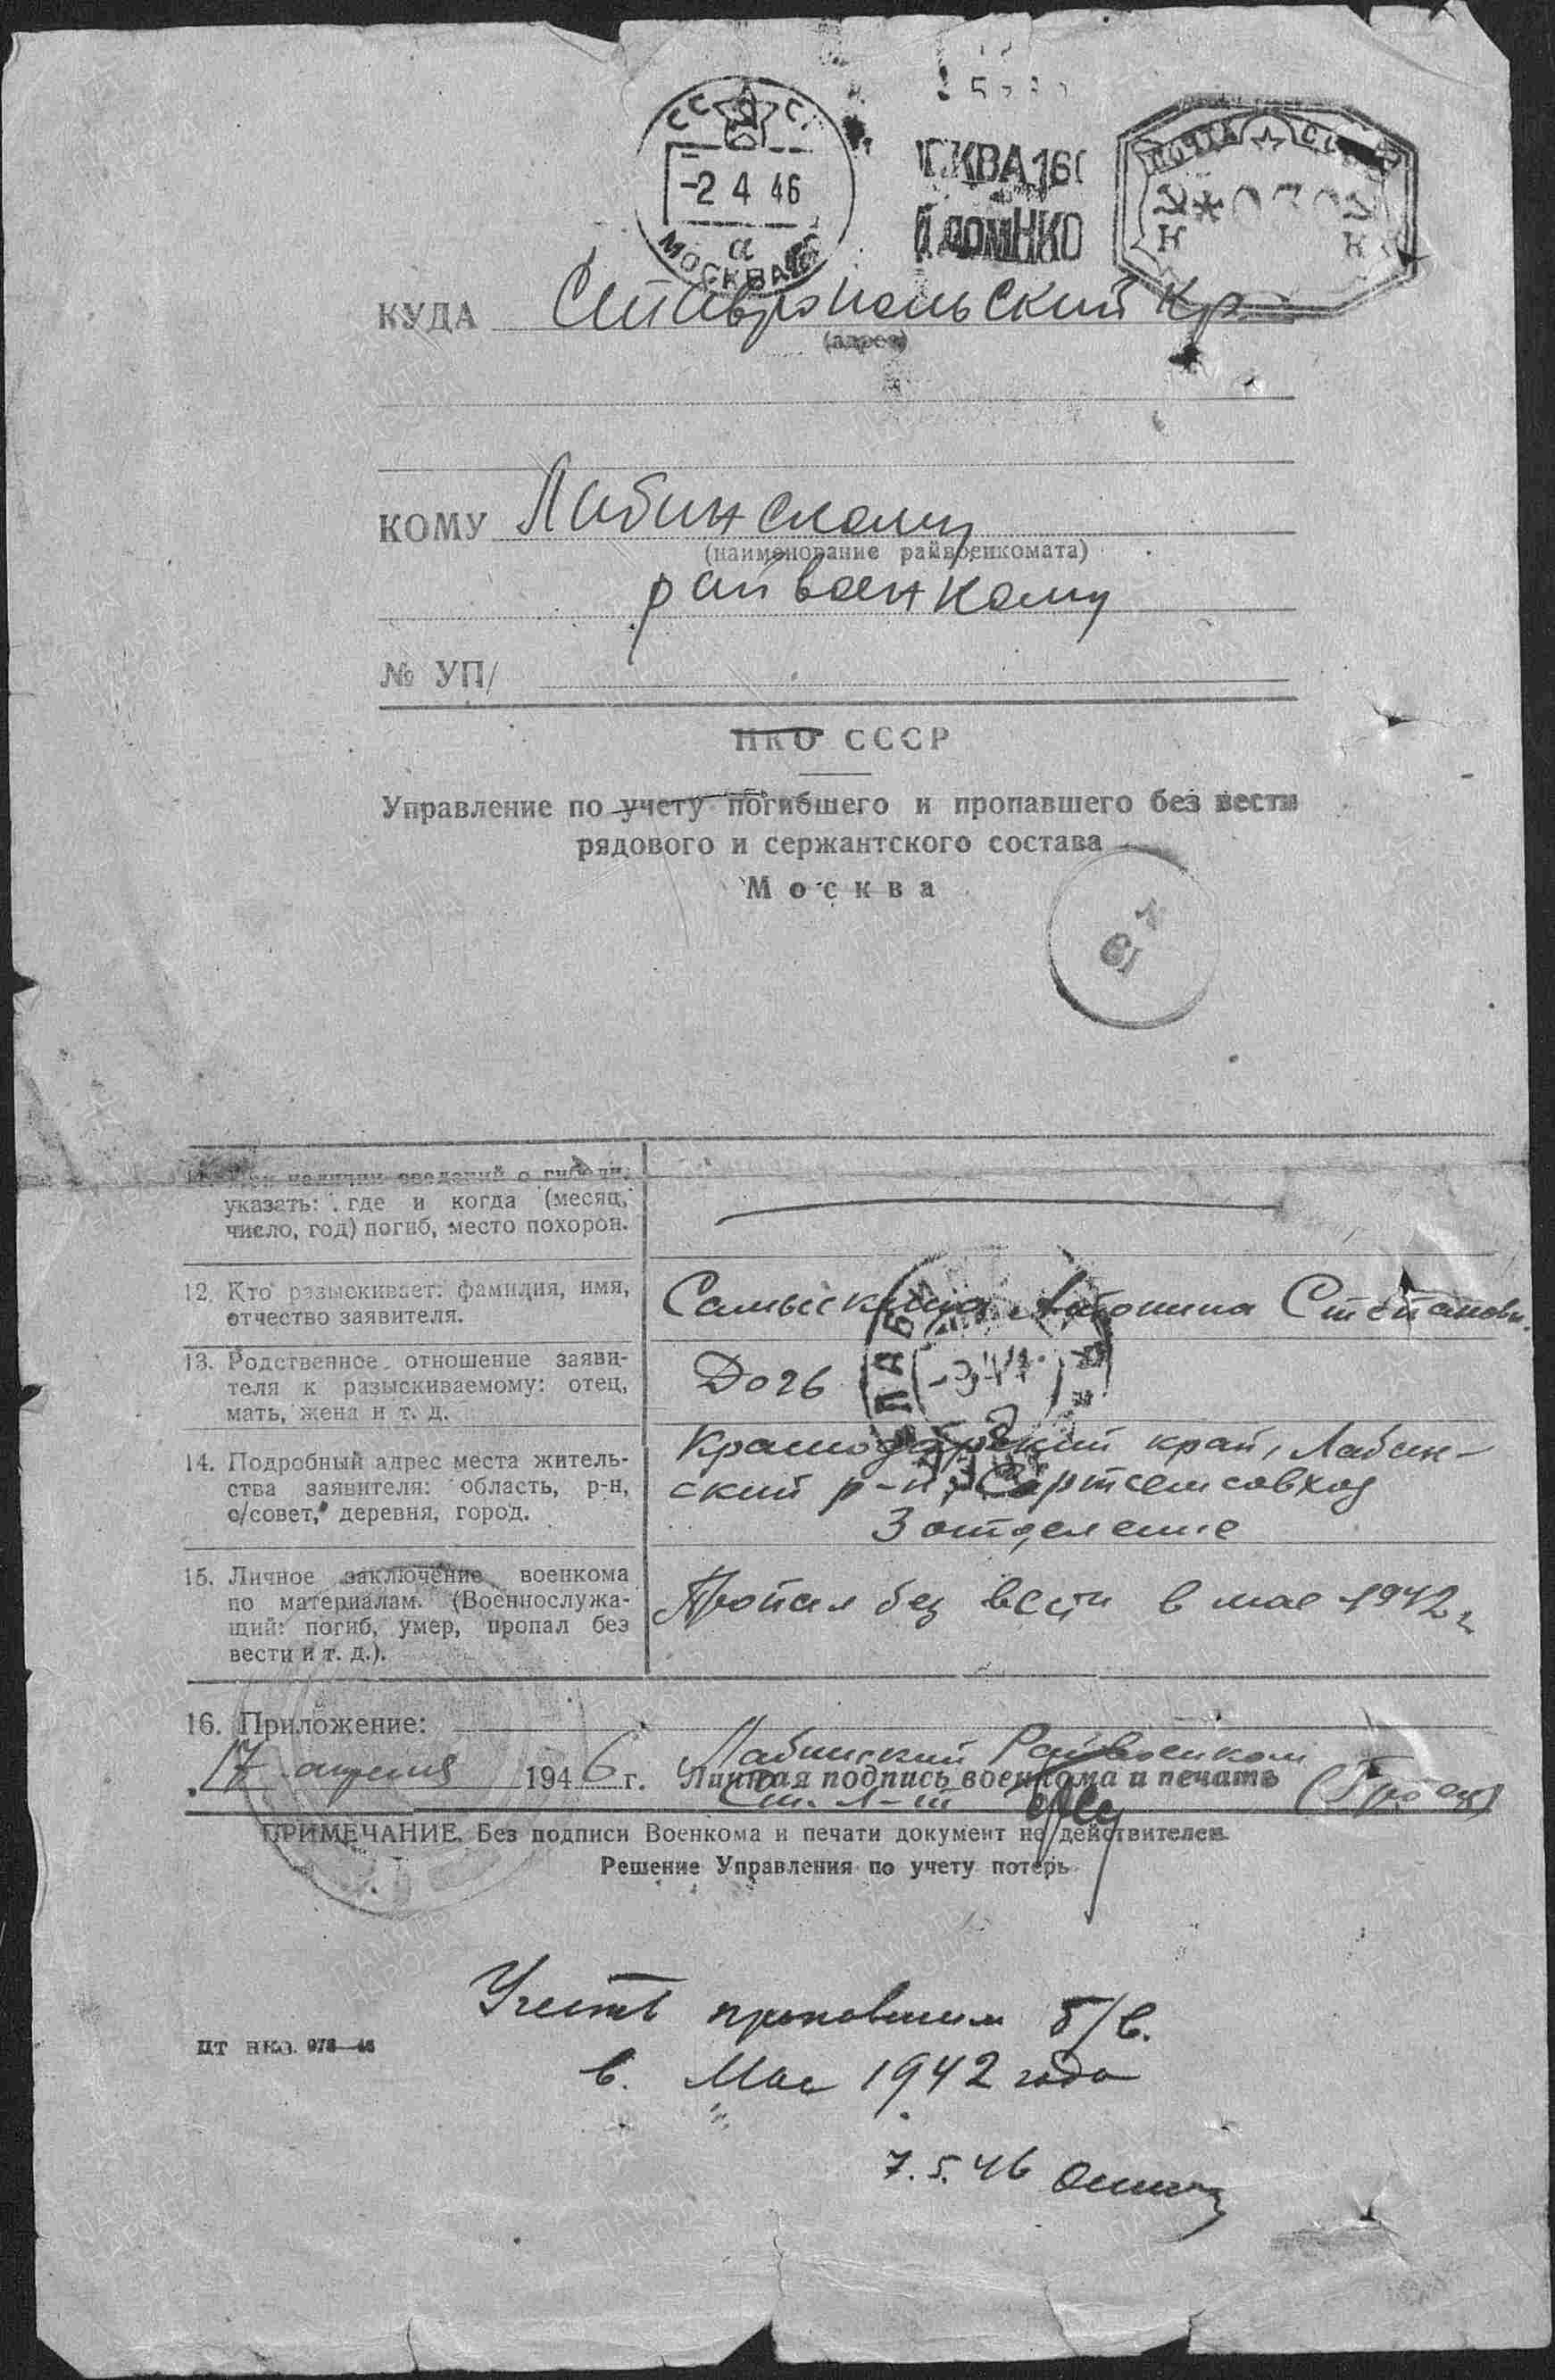 СССР
-2 4 46
а
МОСКВА
ПОЧТА СССР
К К
КУДА Ставропольский кр.
(адрес)
КОМУ Лабинскому
(наименование райвоенкомата)
райвоенкому
№ УП/
НКО СССР
Управление по учету погибшего и пропавшего без вести
рядового и сержантского состава
Москва
наличии сведений о гибели,
указать: где и когда (месяц,
число, год) погиб, место похорон.
12. Кто разыскивает: фамилия, имя,
отчество заявителя.
Антонина Степановн.
13. Родственное отношение заяви-
теля к разыскиваемому: отец,
мать, жена и т. д.
Дочь
14. Подробный адрес места житель-
ства заявителя: область, р-н,
с/совет, деревня, город.
Краснодарский край, Лабин-
ский р-н, Сортсемсовхоз
3 отделение
15. Личное заключение военкома
по материалам. (Военнослужа-
щий: погиб, умер, пропал без
вести и т. д.).
Пропал без вести в мае 1942 г
16. Приложение:
Лабинский Райвоенком
17 апреля 1946 г. Личная подпись военкома и печать
Ст. л-т
ПРИМЕЧАНИЕ. Без подписи Военкома и печати документ не действителен.
Решение Управления по учету потерь
Учесть пропавшим б/в.
в. Мае 1942 года
7.5.46